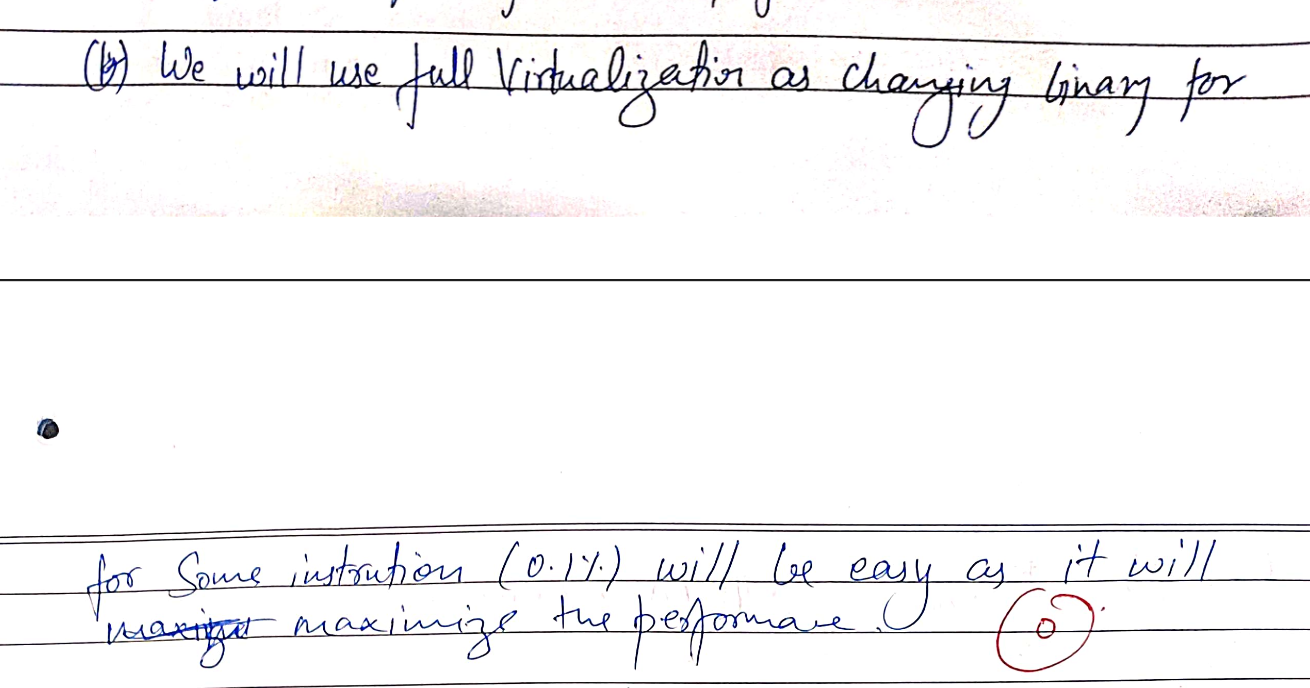 (b) We will use full Virtualization as changing binary for
for Some instrution (0.1%) will be easy as it will
maximize the performance.
0